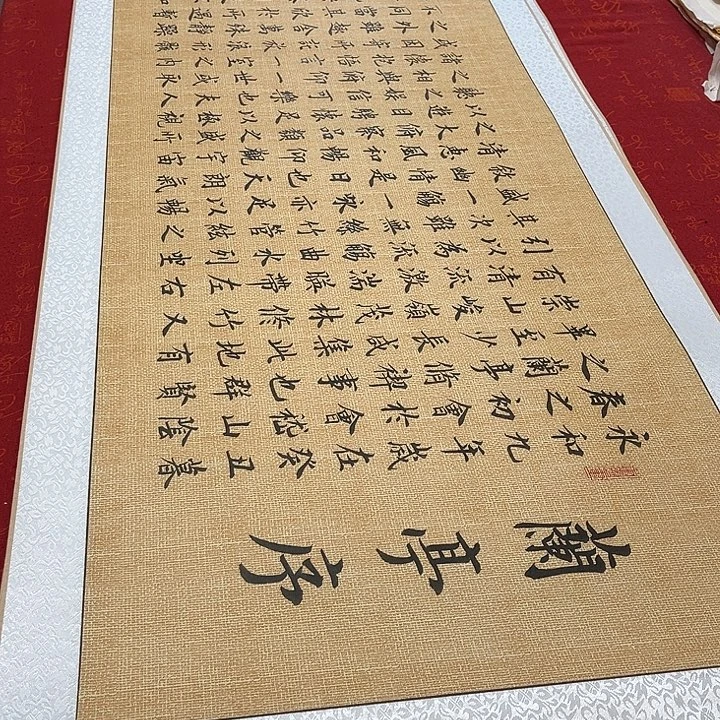 蘭亭序
永和九年歲在癸丑暮
春之初會於會稽山陰
之蘭亭脩禊事也群賢
畢至少長咸集此地有
崇山峻嶺茂林脩竹又
有清流激湍映帶左右
引以為流觴曲水列坐
其次雖無絲竹管絃之
盛一觴一詠亦足以暢
敘幽情是日也天朗氣
清惠風和暢仰觀宇宙
之大俯察品類之盛所
以遊目騁懷足以極視
聽之娛信可樂也夫人
之相與俯仰一世或取
諸懷抱悟言一室之內
或因寄所託放浪形骸
之外雖趣舍萬殊靜躁
不同當其欣於所遇暫